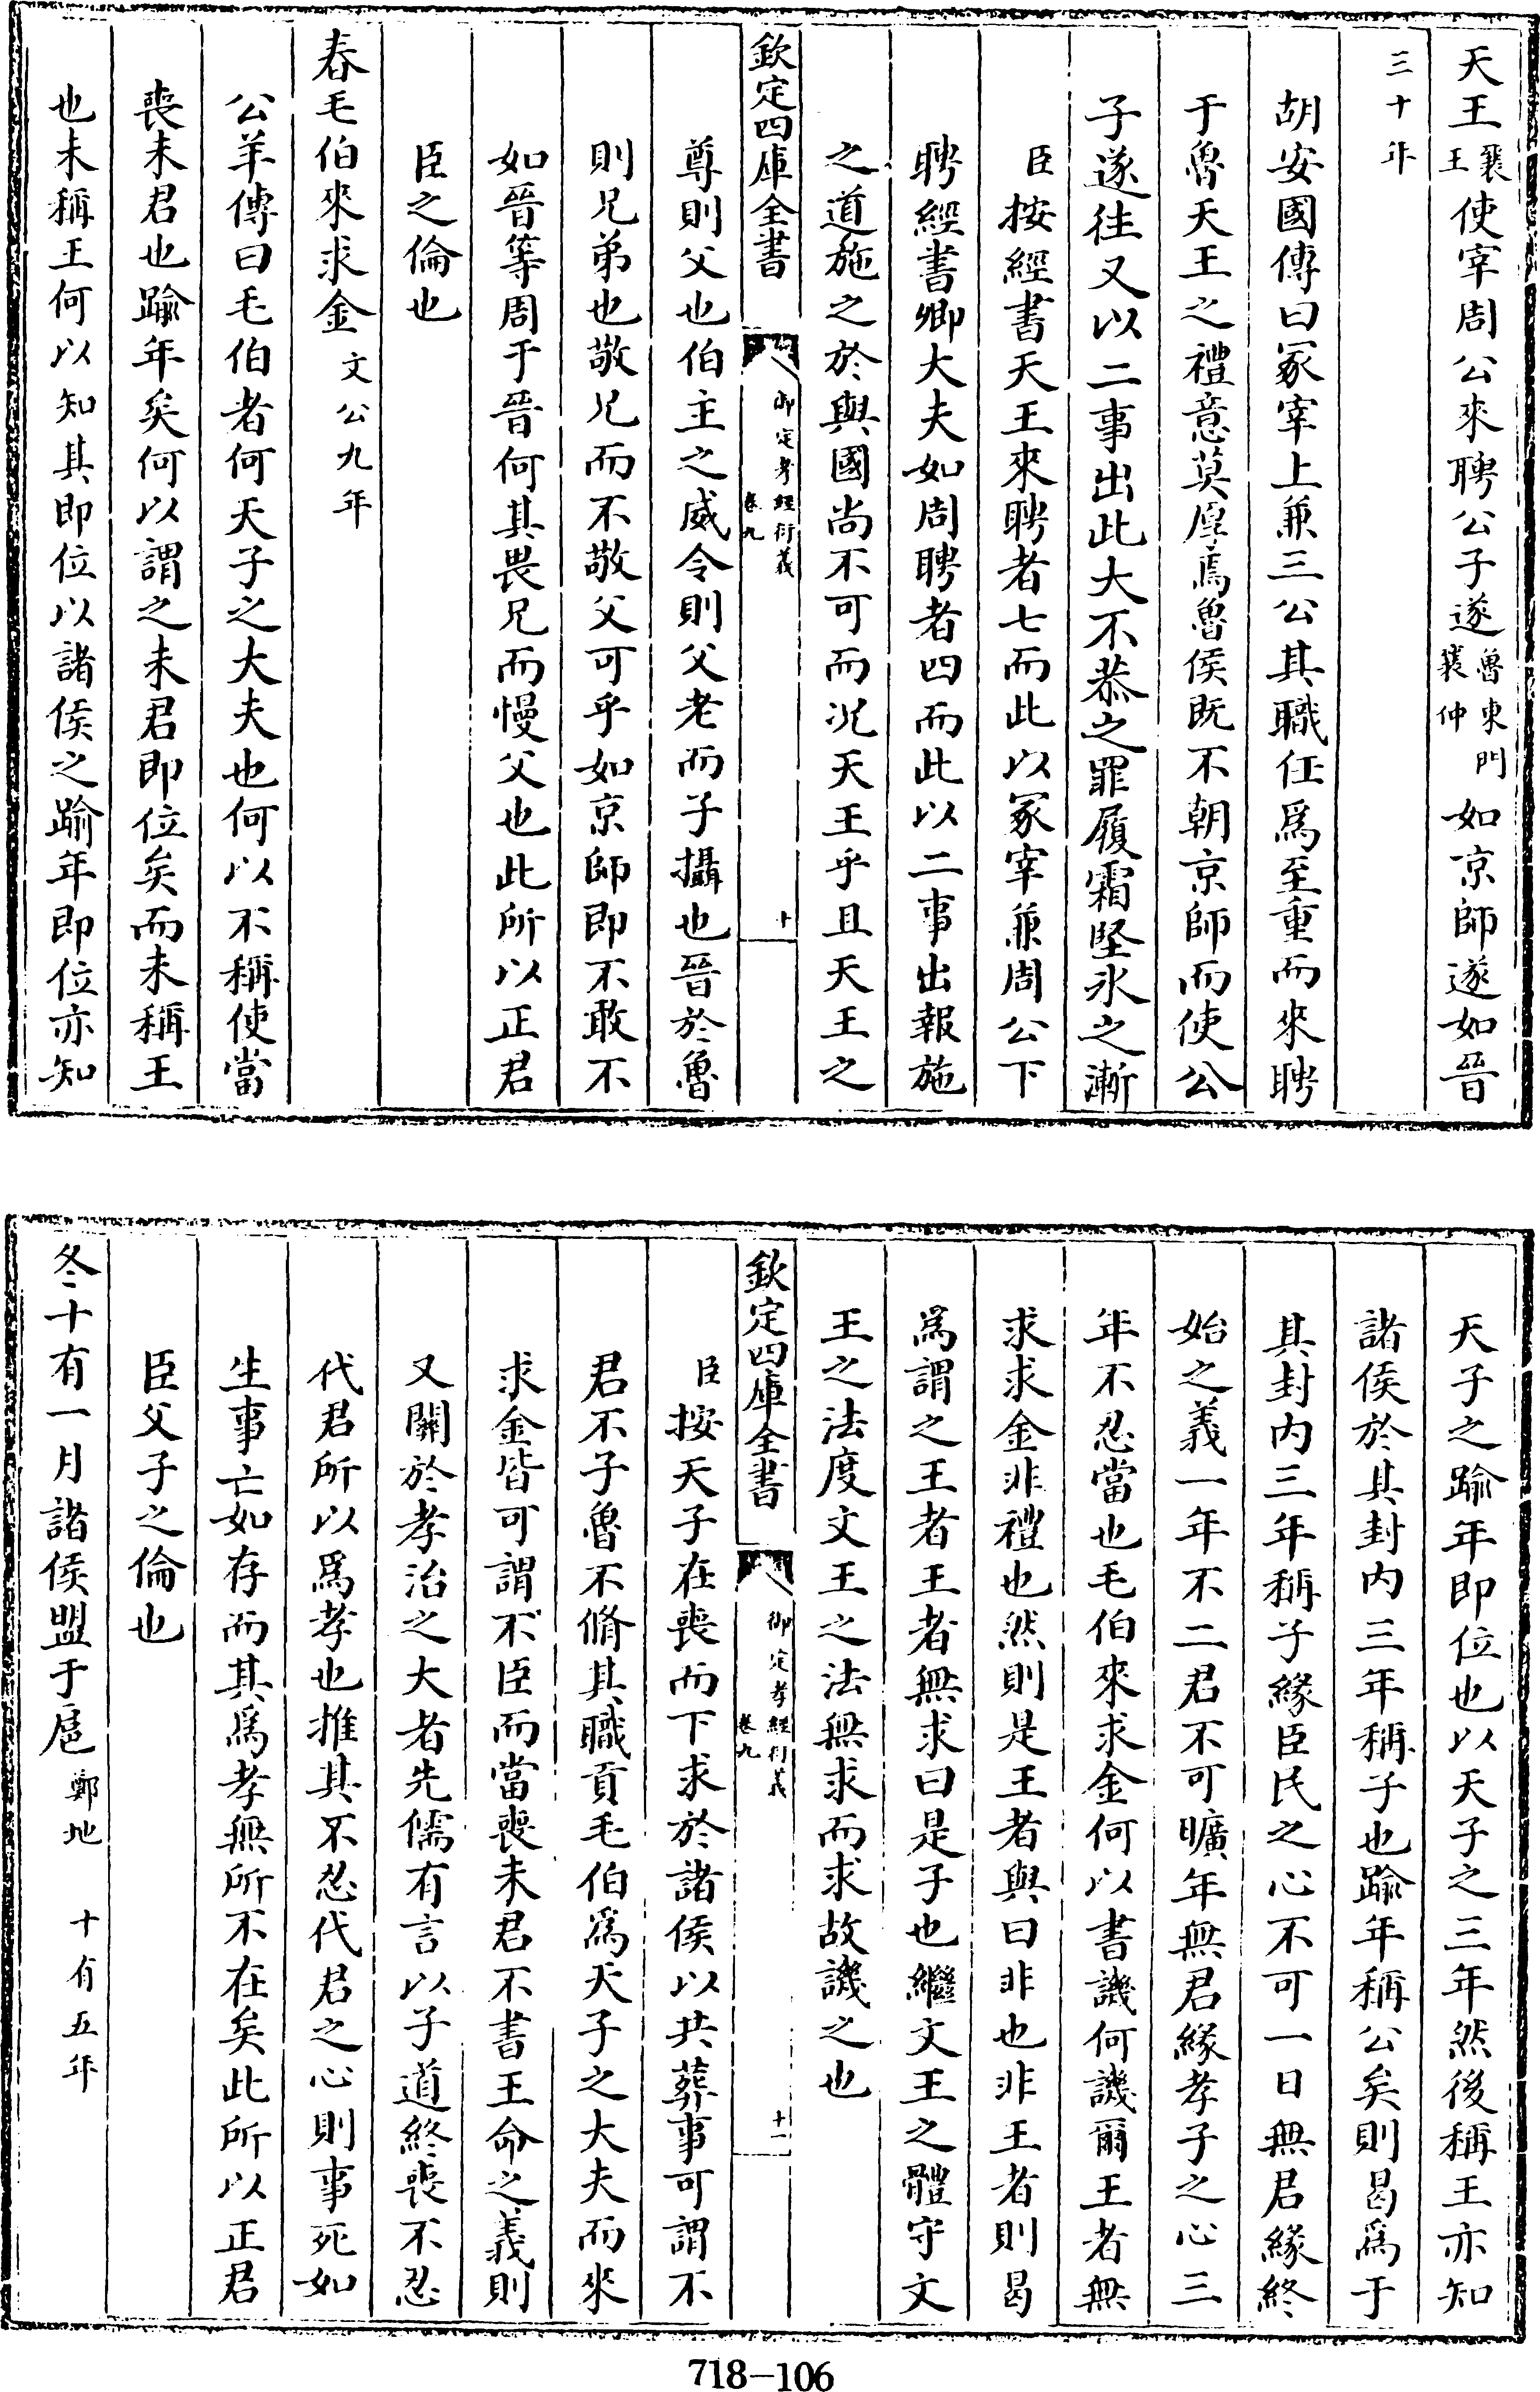 天王襄王使宰周公來聘公子遂魯東門襄仲如京師遂如晉
三十年
胡安國傳曰冢宰上兼三公其職任爲至重而來聘
于魯天王之禮意莫厚焉魯侯既不朝京師而使公
子遂往又以二事出此大不恭之罪履霜堅氷之漸
臣按經書天王來聘者七而此以冢宰兼周公下
聘經書卿大夫如周聘者四而此以二事出報施
之道施之於與國尚不可而况天王乎且天王之
欽定四庫全書
御定孝經衍義
卷九
十
尊則父也伯主之威令則父老而子攝也晉於魯
則兄弟也敬兄而不敬父可乎如京師即不敢不
如晉等周于晉何其畏兄而慢父也此所以正君
臣之倫也
春毛伯來求金文公九年
公羊傳曰毛伯者何天子之大夫也何以不稱使當
喪未君也踰年矣何以謂之未君即位矣而未稱王
也未稱王何以知其即位以諸侯之踰年即位亦知
天子之踰年即位也以天子之三年然後稱王亦知
諸侯於其封内三年稱子也踰年稱公矣則曷爲于
其封内三年稱子緣臣民之心不可一日無君緣終
始之義一年不二君不可曠年無君緣孝子之心三
年不忍當也毛伯來求金何以書譏何譏爾王者無
求求金非禮也然則是王者與曰非也非王者則曷
爲謂之王者王者無求曰是子也繼文王之體守文
王之法度文王之法無求而求故譏之也
欽定四庫全書
御定孝經衍義
卷九
十一
臣按天子在喪而下求於諸侯以共葬事可謂不
君不子魯不脩其職貢毛伯爲天子之大夫而來
求金皆可謂不臣而當喪未君不書王命之義則
又關於孝治之大者先儒有言以子道終喪不忍
代君所以爲孝也推其不忍代君之心則事死如
生事亡如存而其爲孝無所不在矣此所以正君
臣父子之倫也
冬十有一月諸侯盟于扈鄭地 十有五年
718-106